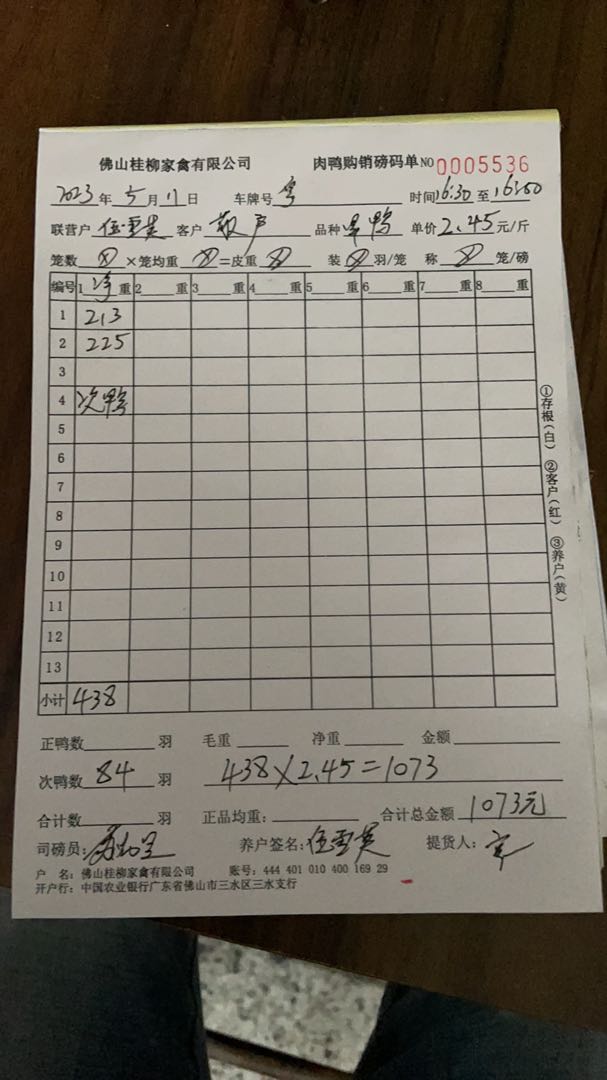 佛山桂柳家禽有限公司 肉鸭购销磅码单 NO 0005536
2023年5月17日 车牌号 时间16:30至16:50
联营户 伍雪英 客户 敬声 品种 鸭 单价2.45元/斤
笼数 ×笼均重 =皮重 装 羽/笼 称 笼/磅
编号 1 净 重 2 重 3 重 4 重 5 重 6 重 7 重 8 重
1 213
2 225
3
4 次鸭
5
6
7
8
9
10
11
12
13
小计 438
①存根(白) ②客户(红) ③养户(黄)
正鸭数 羽 毛重 净重 金额
次鸭数 84 羽 438×2.45=1073
合计数 羽 正品均重: 合计总金额 1073元
司磅员: 养户签名:伍雪英 提货人:
户 名:佛山桂柳家禽有限公司 账号:444 401 010 400 169 29
开户行:中国农业银行广东省佛山市三水区三水支行